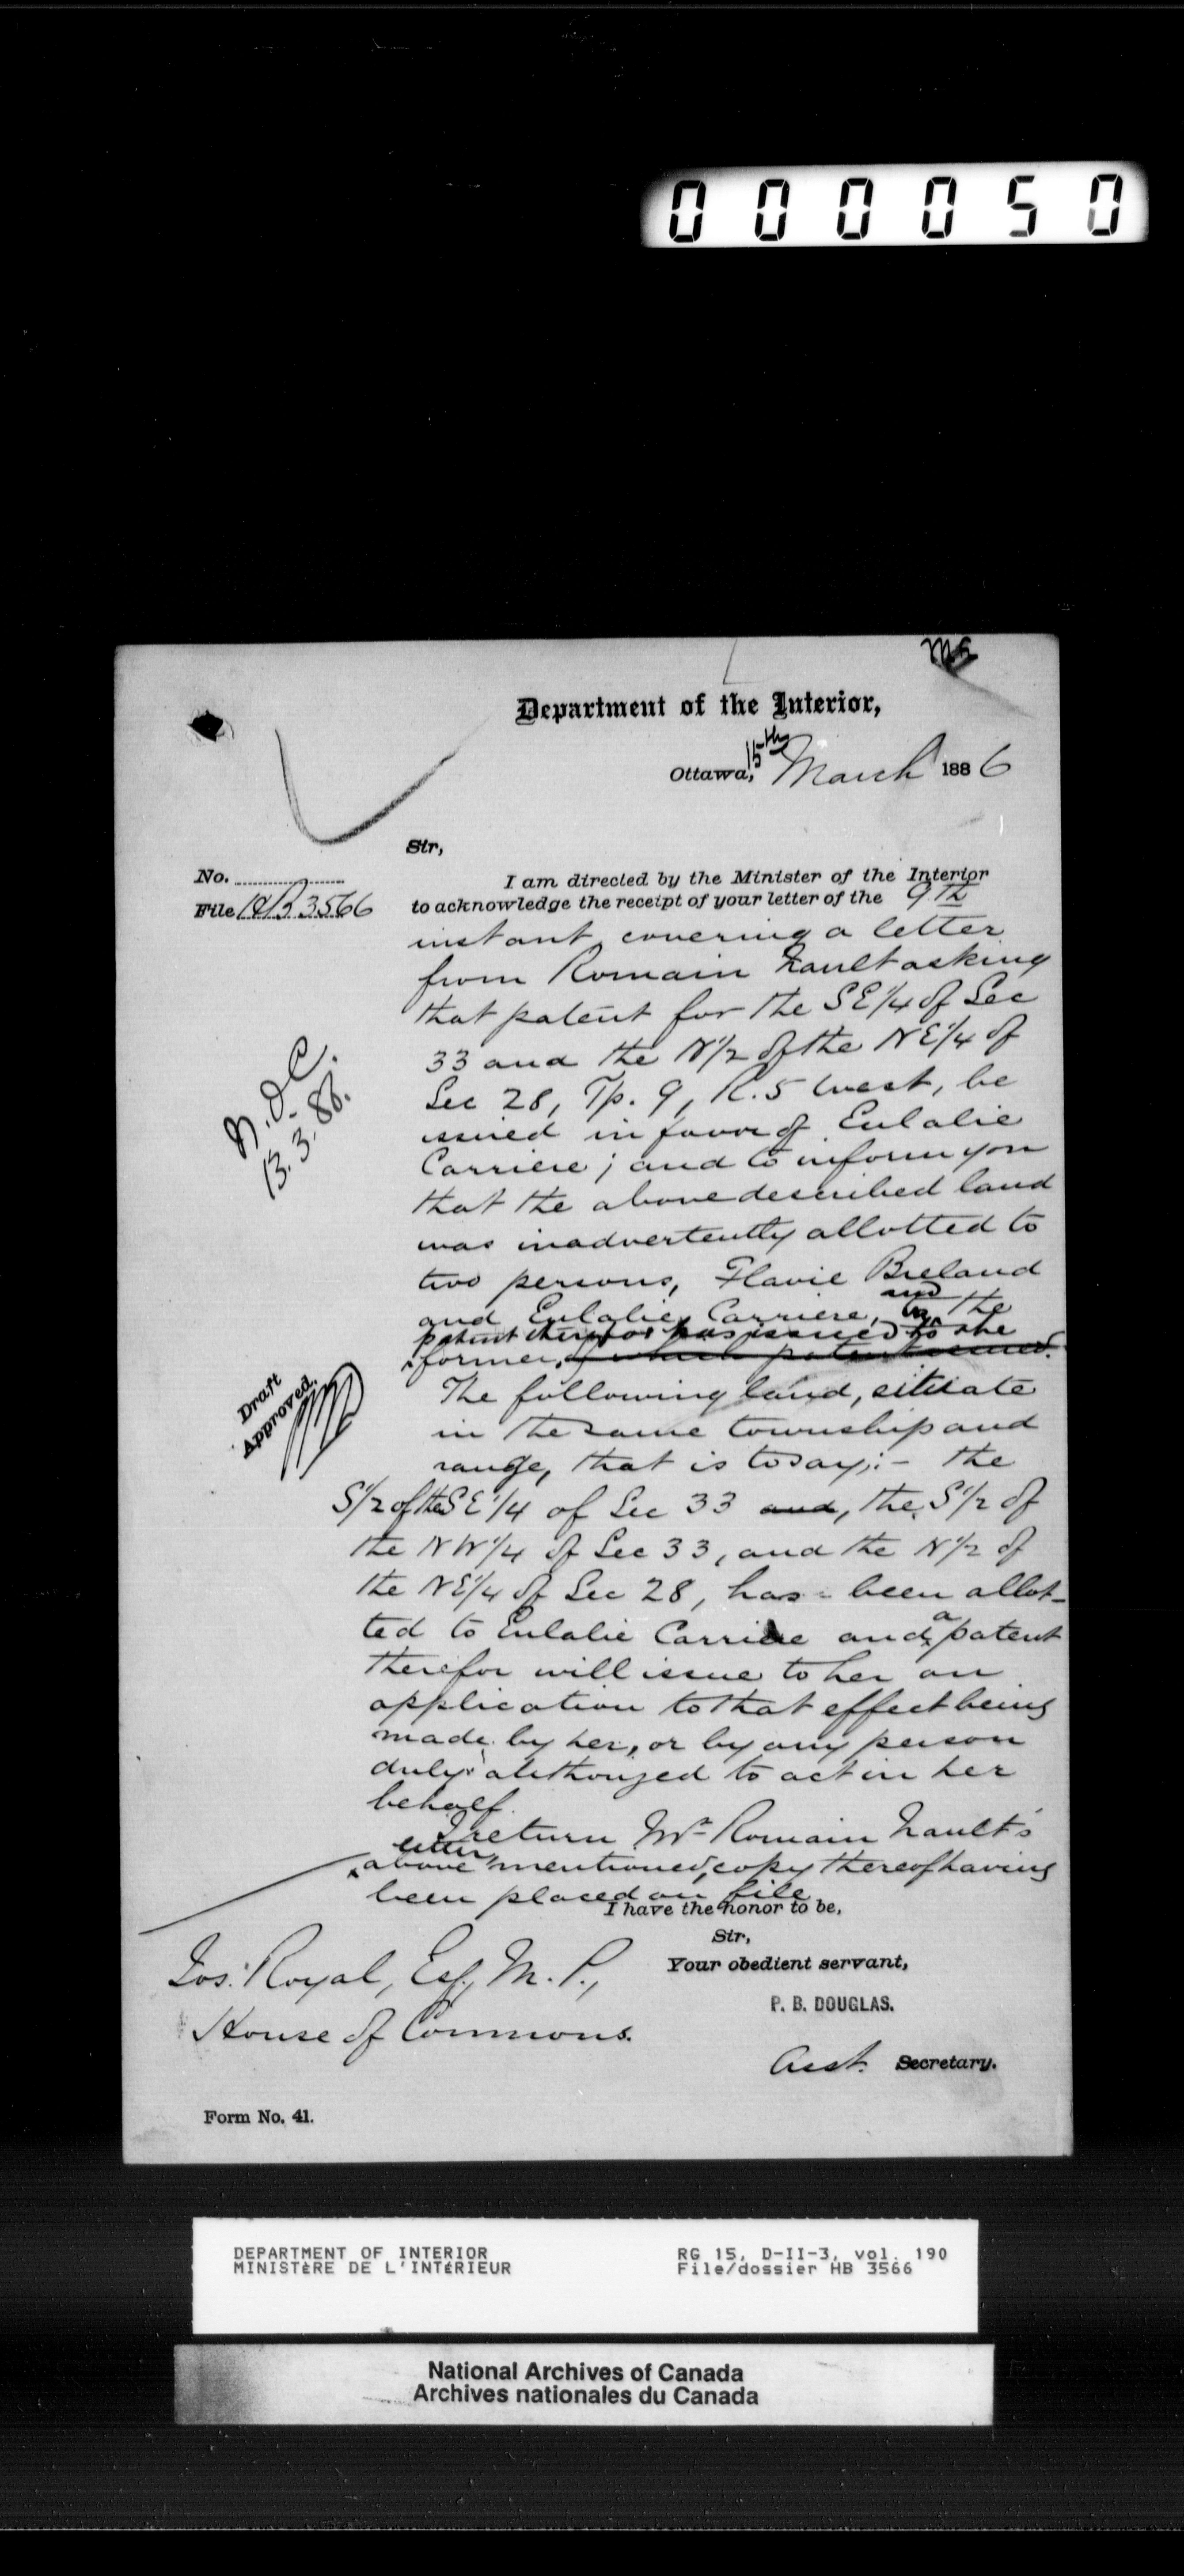 000050
Department of the Interior,
Ottawa, 15th March 1886
Sir,
No.
File HB 3566
I am directed by the Minister of the Interior
to acknowledge the receipt of your letter of the 9th
instant, covering a letter
from Romain Nault asking
that patent for the SE 1/4 of Sec
33 and the N 1/2 of the NE 1/4 of
Sec 28, Tp. 9, R. 5 West, be
issued in favor of Eulalie
Carriere; and to inform you
that the above described land
was inadvertently allotted to
two persons, Flavie Breland
and Eulalie Carriere, and the
patent therefor has issued to the
former,
The following land, situate
in the same township and
range, that is to say;- the
S 1/2 of the SE 1/4 of Sec 33 and, the S 1/2 of
the NW 1/4 of Sec 33, and the N 1/2 of
the NE 1/4 of Sec 28, has been allot-
ted to Eulalie Carriere and a patent
therefor will issue to her on
application to that effect being
made by her, or by any person
duly authorized to act in her
behalf.
I return Mr Romain Nault's
above mentioned letter, copy thereof having
been placed on file
N.O.C.
13.3.86.
Draft
Approved.
I have the honor to be,
Sir,
Your obedient servant,
P. B. DOUGLAS.
Asst. Secretary.
Jos. Royal, Esq, M.P.,
House of Commons.
Form No. 41.
DEPARTMENT OF INTERIOR
MINISTÈRE DE L'INTÉRIEUR
RG 15, D-II-3, vol. 190
File/dossier HB 3566
National Archives of Canada
Archives nationales du Canada